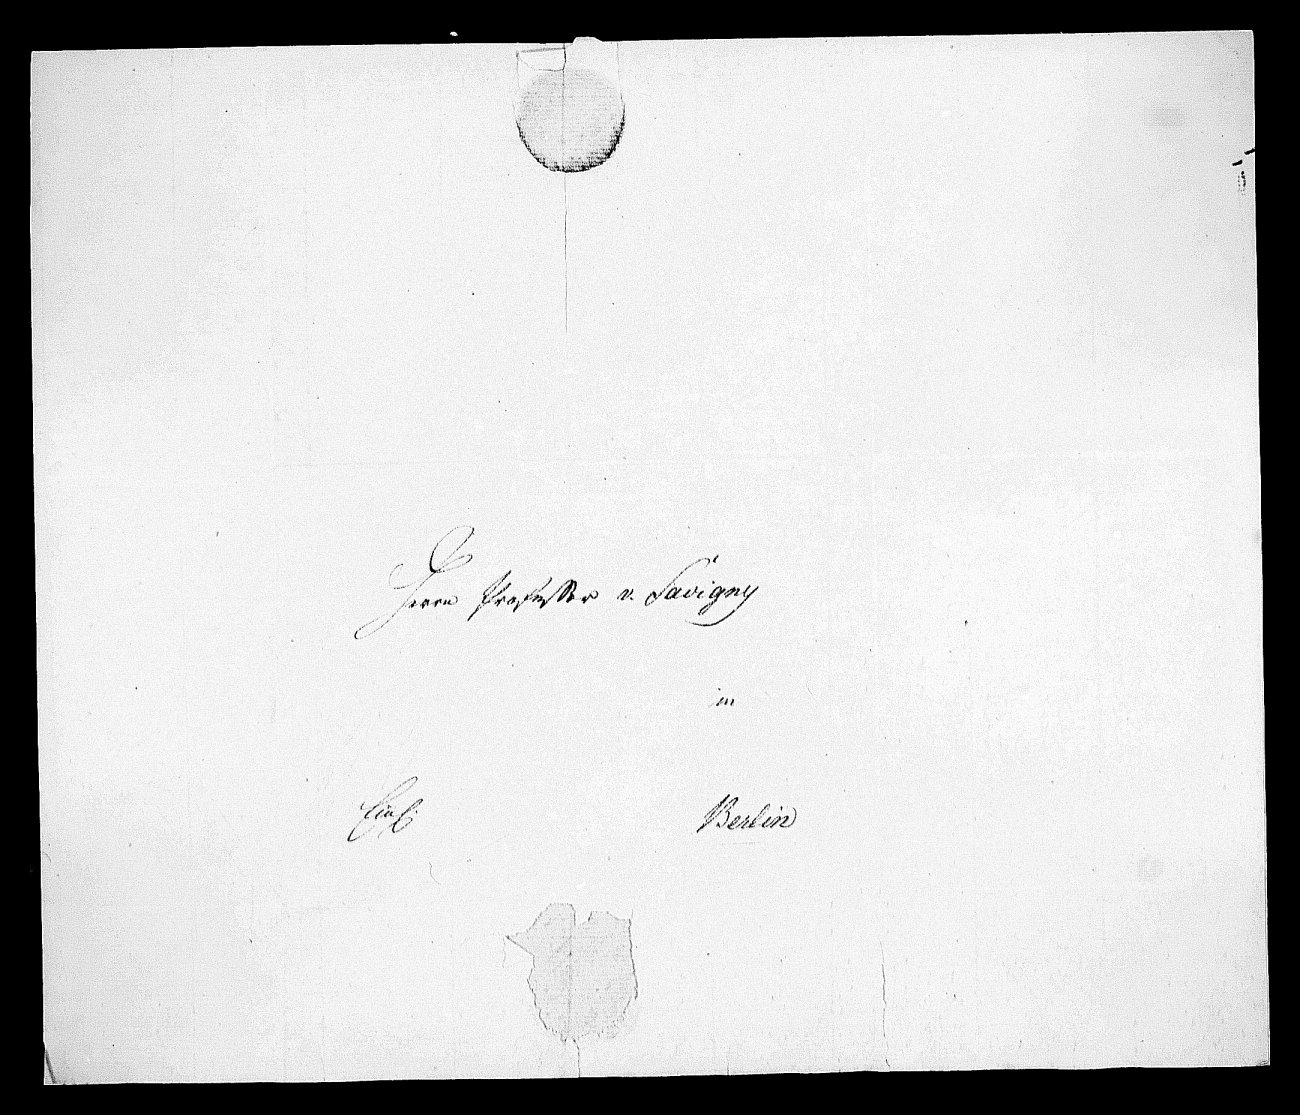 Herrn Professor v. Savigny
in
Berlin